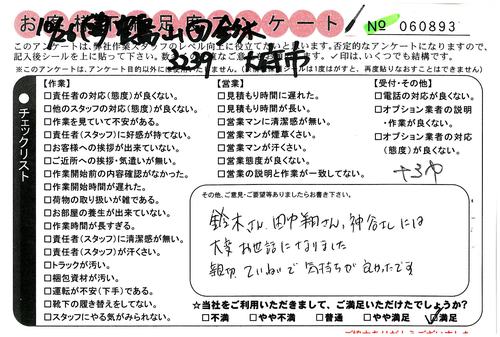 お客様満足度アンケート
No 060893
このアンケートは、弊社作業スタッフのレベル向上に役立てたいと思います。否定的なアンケートになりますので、
記入後シールを上に貼って下さい。✓印は、いくつでも結構です。
※このアンケートは、アンケート目的以外に使用いたしません。
3229
チェックリスト
【作業】
□責任者の対応(態度)が良くない。
□他のスタッフの対応(態度)が良くない。
□作業を見ていて不安がある。
□責任者(スタッフ)に好感が持てない。
□お客様への挨拶が出来ていない。
□ご近所への挨拶・気遣いが無い。
□作業開始前の内容確認がなかった。
□作業開始時間が遅れた。
□荷物の取り扱いが雑である。
□お部屋の養生が出来ていない。
□作業時間が長すぎる。
□責任者(スタッフ)に清潔感が無い。
□責任者(スタッフ)が汗くさい。
□トラックが汚い。
□梱包資材が汚い。
□運転が不安(下手)である。
□靴下の履き替えをしてない。
□スタッフにやる気がみられない。
【営業】
□見積もり時間に遅れた。
□見積もり時間が長い。
□営業マンに清潔感が無い。
□営業マンが煙草くさい。
□営業マンが汗くさい。
□営業態度が良くない。
□営業の説明と作業が一致してない。
【受付・その他】
□電話の対応が良くない。
□オプション業者の説明
・作業が良くない。
□オプション業者の対応
(態度)が良くない。
その他、ご意見・ご要望等ありましたらお書き下さい。
鈴木さん、田中翔さん、神谷さんには
大変お世話になりました
親切、ていねいで気持ちが良かったです
☆当社をご利用いただきまして、ご満足いただけたでしょうか?
□不満 □やや不満 □普通 □やや満足 ☑満足